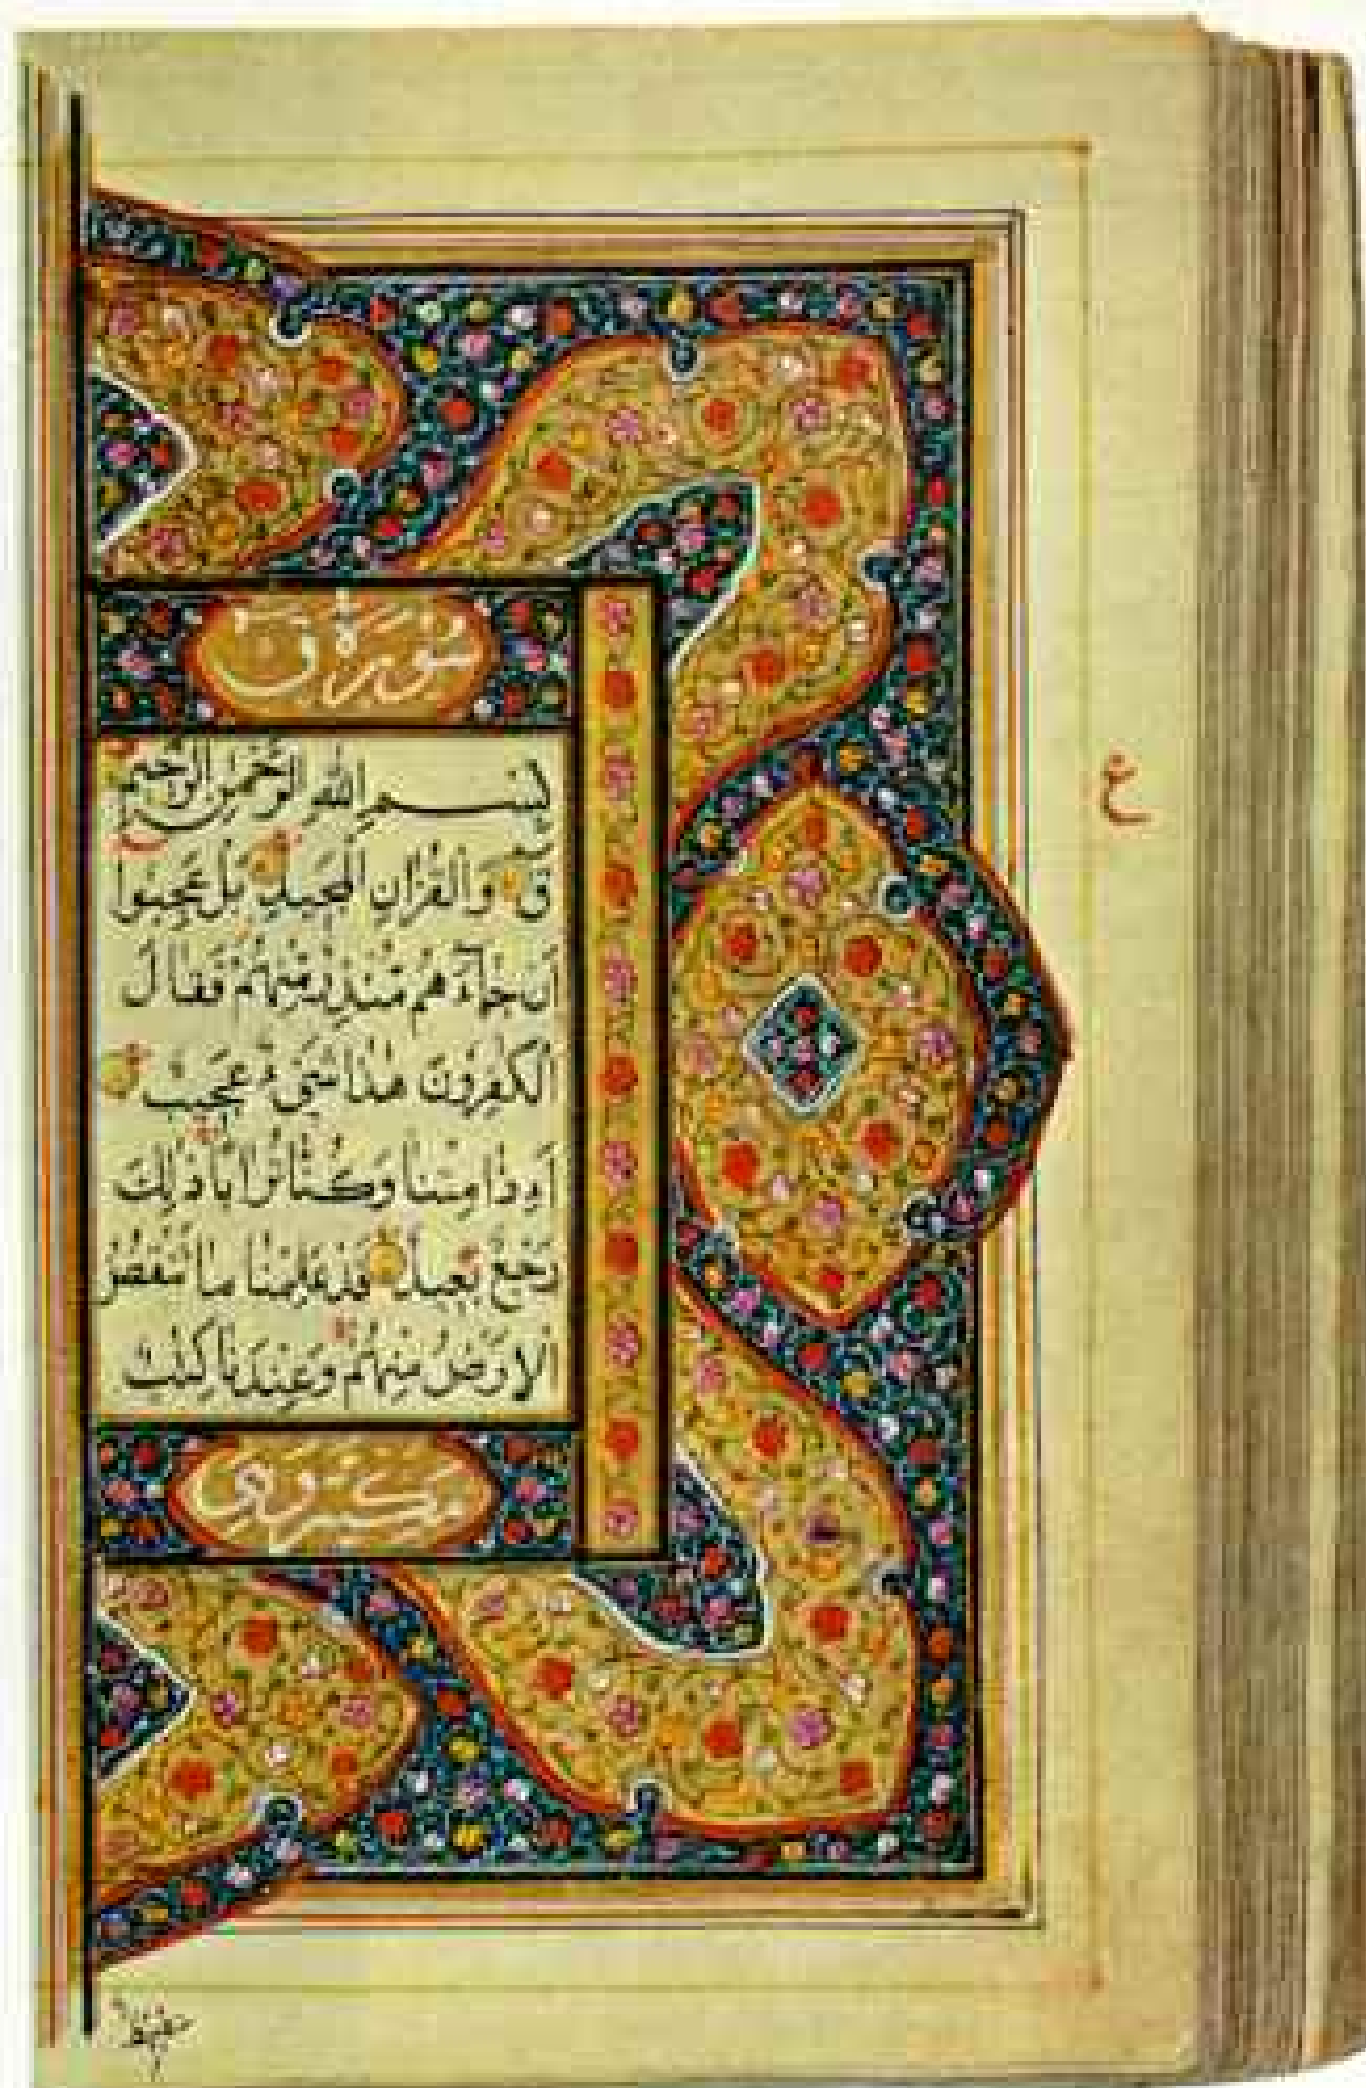 سُورَةُ ق
بِسْمِ اللهِ الرَّحْمٰنِ الرَّحِيْمِ
قٓ وَالْقُرْاٰنِ الْمَجِيْدِ بَلْ عَجِبُوْا
اَنْ جَآءَهُمْ مُّنْذِرٌ مِّنْهُمْ فَقَالَ
الْكٰفِرُوْنَ هٰذَا شَیْءٌ عَجِيْبٌ
ءَاِذَا مِتْنَا وَكُنَّا تُرَابًا ذٰلِكَ
رَجْعٌ بَعِيْدٌ قَدْ عَلِمْنَا مَا تَنْقُصُ
الْاَرْضُ مِنْهُمْ وَعِنْدَنَا كِتٰبٌ
ع
حفيظ